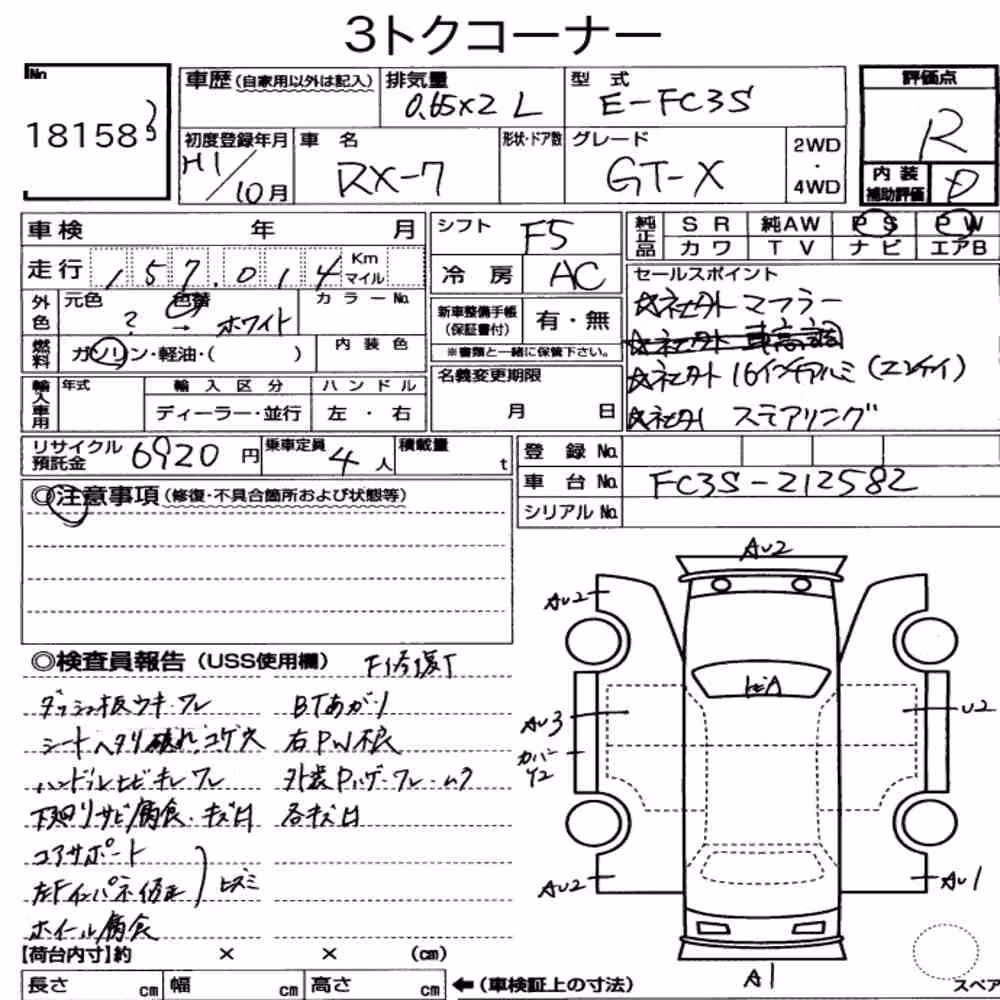 3トクコーナー
No
18158
車歴 (自家用以外は記入)
排気量 0.65×2 L
型式 E-FC3S
評価点 R
初度登録年月 H1/10月
車名 RX-7
形状・ドア数
グレード GT-X
2WD・4WD
内装補助評価 D
車検 年 月
シフト F5
純正品 SR 純AW PS PW
カワ TV ナビ エアB
走行 157.014 Km マイル
冷房 AC
セールスポイント
☆社外 マフラー
☆社外 車高調
☆社外 16インチアルミ (エンケイ)
☆社外 ステアリング
外色 元色 ? → 色替 ホワイト カラーNo.
新車整備手帳 (保証書付) 有・無
※書類と一緒に保管下さい。
燃料 ガソリン・軽油・( ) 内装色
名義変更期限
月 日
輸入車用 年式 輸入区分 ハンドル
ディーラー・並行 左・右
リサイクル預託金 6920円 乗車定員 4人 積載量 t
登録No.
車台No. FC3S-212582
シリアルNo.
◎注意事項 (修復・不具合箇所および状態等)
◎検査員報告 (USS使用欄) F修復T
ダッシュ板ウキ・ワレ BTあがり
シートヘタリ破れ、コゲ穴 右PW不良
ハンドルヒビキレワレ 外装ハゲ・ワレ・ムラ
下廻りサビ腐食・キズ凹 各キズ凹
コアサポート
左Fインパネ修正 ヒズミ
ホイール腐食
AU2
AU2
ヒビA
AU3
U2
カバーY2
AU2
AU1
A1
スペア
【荷台内寸】約 × × (cm)
長さ cm 幅 cm 高さ cm ←(車検証上の寸法)